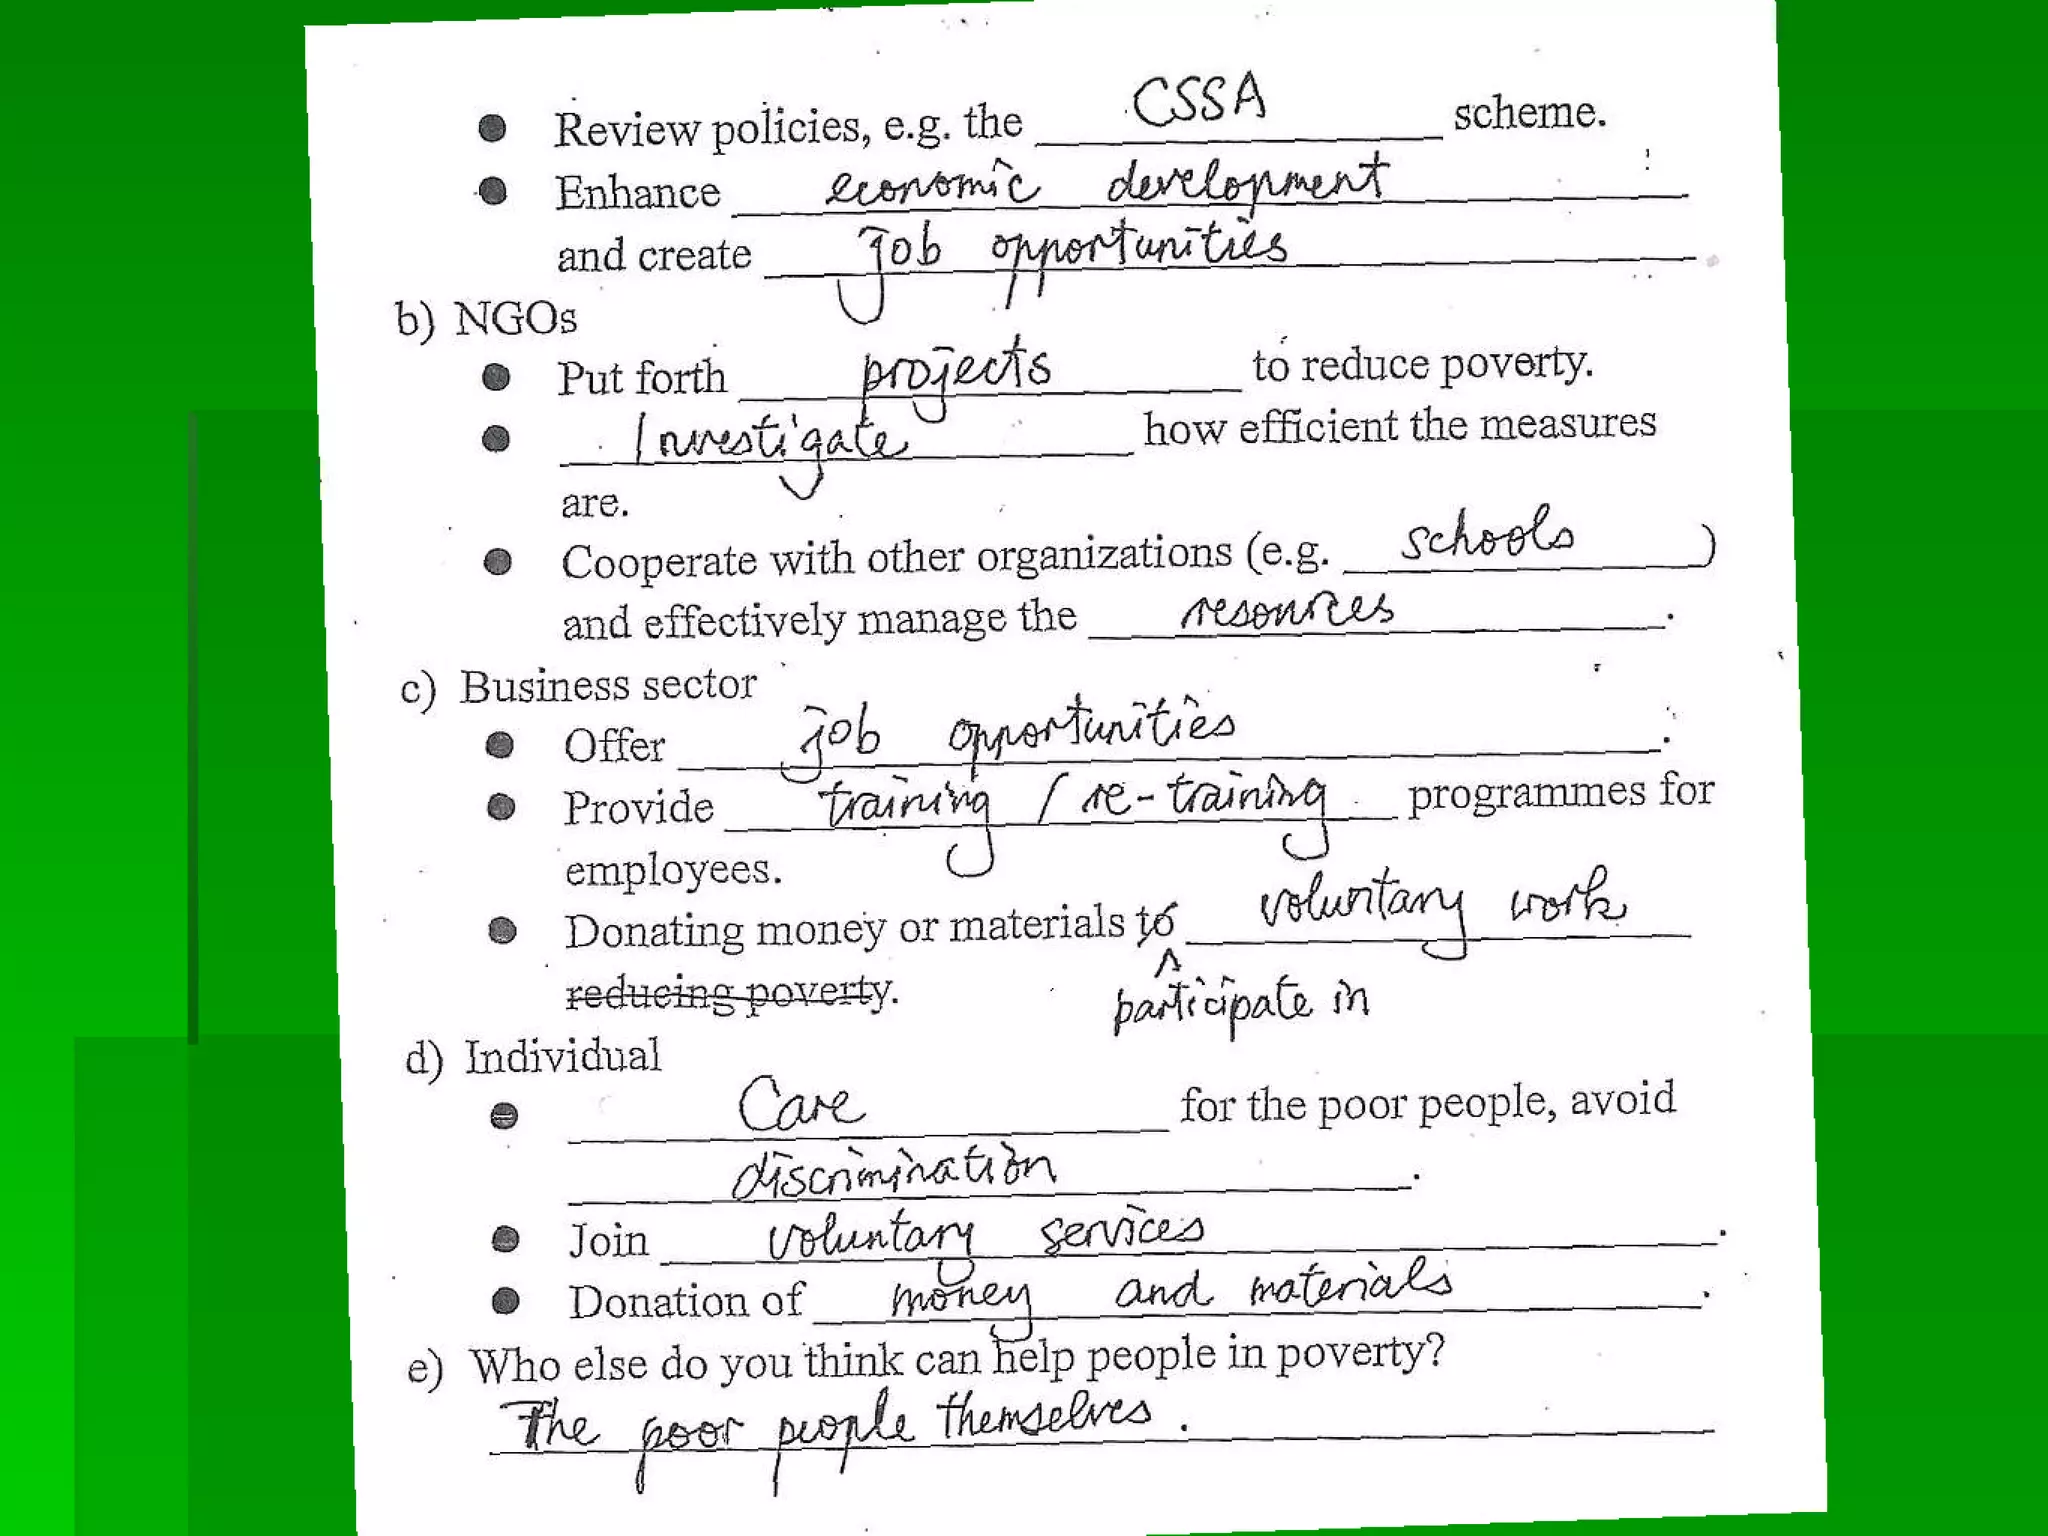 ● Review policies, e.g. the CSSA scheme.
● Enhance economic development
and create job opportunities
b) NGOs
● Put forth projects to reduce poverty.
● Investigate how efficient the measures
are.
● Cooperate with other organizations (e.g. schools)
and effectively manage the resources.
c) Business sector
● Offer job opportunities.
● Provide training / re-training programmes for
employees.
● Donating money or materials to voluntary work
reducing poverty. participate in
d) Individual
● Care for the poor people, avoid
discrimination.
● Join voluntary services.
● Donation of money and materials.
e) Who else do you think can help people in poverty?
The poor people themselves.